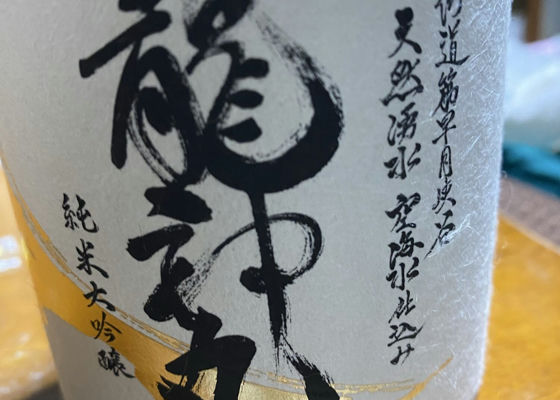 道筋早月
天然湧水 空海水仕込み
龍神丸
純米大吟醸